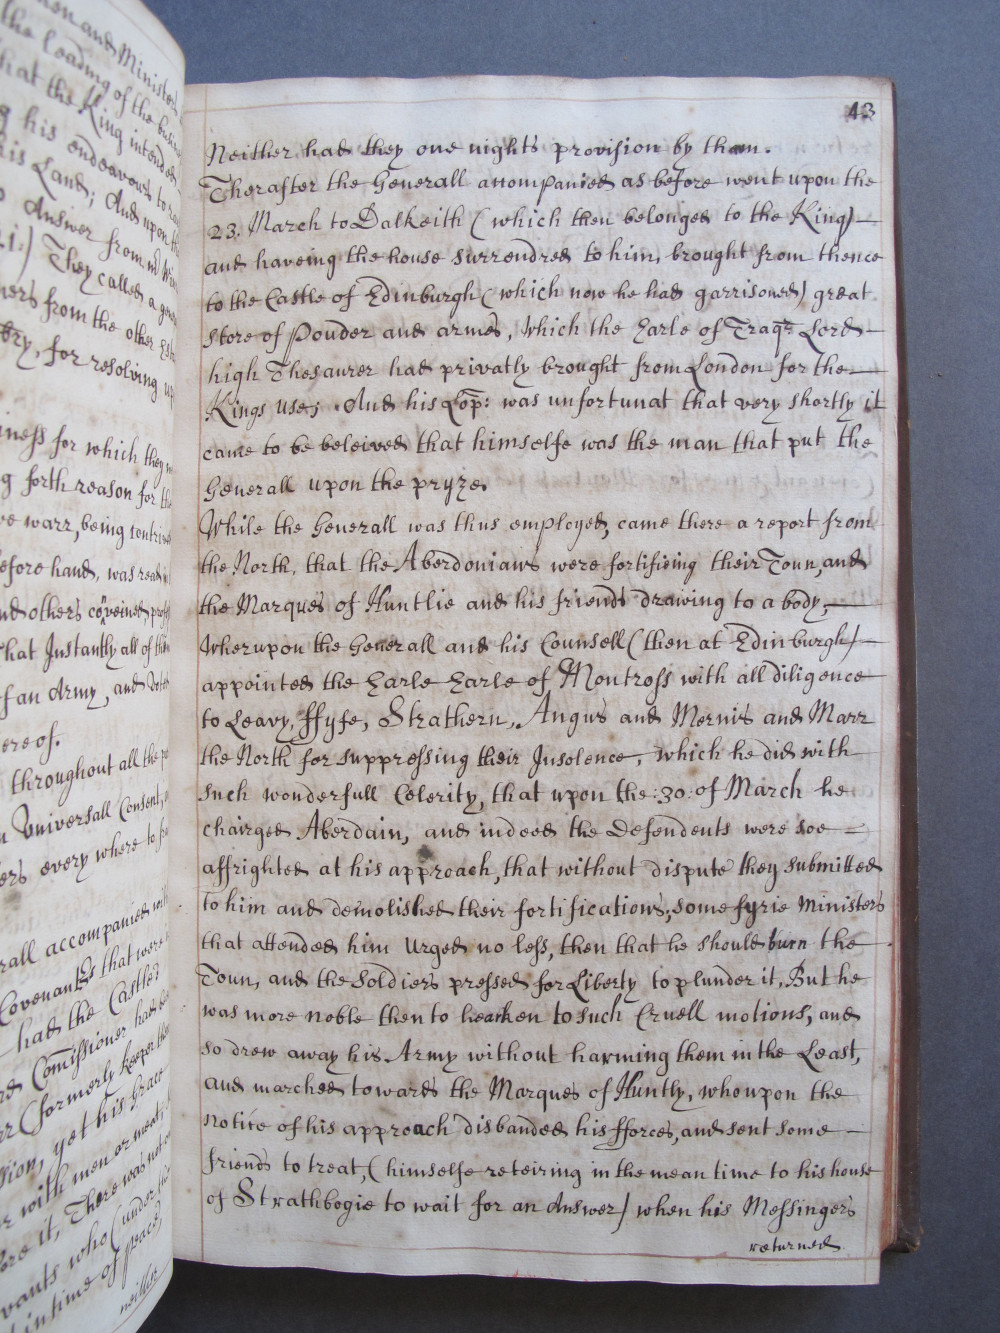 on and Ministers
the Leading of the
that the King intended
g his endeavours to
his Land; And upon the
Answer from
They called a
ners from the other
try, for resolving up
iness for which they
g forth reason for the
ve warr, being contriv
efore hand, was read
nd others conveined
that Instantly all of
f an Army, and
ere of.
throughout all the
n Universall Consent,
ers every where to
rall accompanied with
Covenants that were
had the Castle
Comissioner had
rr (formerly keeper
sion, yet his Grace
r with men or meat,
ore it, There was not
vants who (under
in time of peace)
neither
43
Neither had they one nights provision by them.
Therafter the Generall accompanied as before went upon the
23. March to Dalkeith (which then belonged to the King)
and haveing the house surrendred to him, brought from thence
to the Castle of Edinburgh (which now he had garrisoned) great
store of Pouder and armes, which the Earle of Traqr Lord
high Thesaurer had privatly brought from London for the
Kings use; And his Lop: was unfortunat that very shortly it
came to be beleived that himselfe was the man that put the
Generall upon the pryze.
While the Generall was thus employed, came there a report from
the North, that the Aberdonians were fortifieing their Toun, and
the Marques of Huntlie and his friends drawing to a body,
Wherupon the Generall and his Counsell (then at Edinburgh)
appointed the Earle Earle of Montross with all diligence
to Leavy, ffyfe, Strathern, Angus and Mernis and Marr
the North for suppressing their Insolence, which he did with
such wonderfull Celerity, that upon the :30: of March he
chairged Aberdain, and indeed the Defendents were soe
affrighted at his approach, that without dispute they submitted
to him and demolished their fortifications, some fyrie Ministers
that attended him Urged no less, then that he should burn the
Toun, and the Soldiers pressed for Liberty to plunder it, But he
was more noble then to hearken to such Cruell motions, and
so drew away his Army without harming them in the Least,
and marched towards the Marques of Huntly, who upon the
notice of his approach disbanded his fforces, and sent some
friends to treat, (himselfe reteiring in the mean time to his house
of Strathbogie to wait for an Answer) when his Messingers
returned